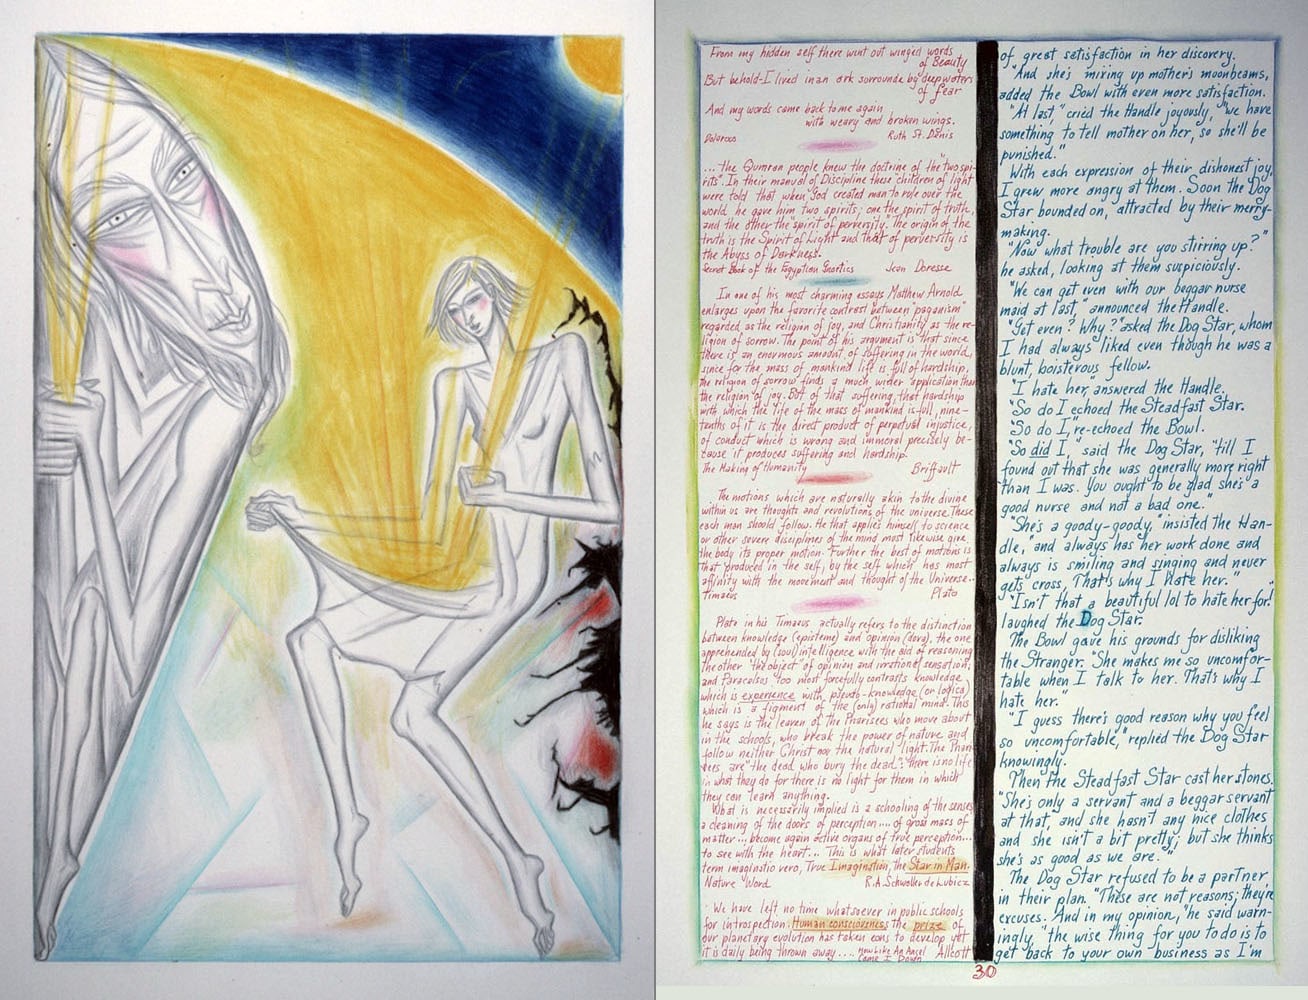 From my hidden self there went out winged words
of Beauty
But behold-I lived in an ark surrounde by deep waters
of fear
And my words came back to me again
with weary and broken wings.
Dolorosa Ruth St. Denis
... the Qumran people knew the doctrine of the "two spi-
rits". In their manual of Discipline these children of light
were told that when God created man to rule over the
world he gave him two spirits; one the spirit of truth,
and the other the "spirit of perversity." The origin of the
truth is the Spirit of Light and that of perversity is
the Abyss of Darkness.
Secret Book of the Egyptian Gnostics Jean Doresse
In one of his most charming essays Matthew Arnold
enlarges upon the favorite contrast between "paganism"
regarded as the religion of joy, and Christianity as the re-
ligion of sorrow. The point of his argument is that since
there is an enormous amount of suffering in the world,
since for the mass of mankind life is full of hardship,
the religion of sorrow finds a much wider application than
the religion of joy. But of that suffering, that hardship
with which the life of the mass of mankind is full, nine-
tenths of it is the direct product of perpetual injustice,
of conduct which is wrong and immoral precisely be-
cause it produces suffering and hardship.
The Making of Humanity Briffault
The motions which are naturally akin to the divine
within us are thoughts and revolutions of the universe. These
each man should follow. He that applies himself to science
or other severe disciplines of the mind most likewise give
the body its proper motion. Further the best of motions is
that produced in the self, by the self which has most
affinity with the movement and thought of the Universe..
Timaeus Plato
Plato in his Timaeus actually refers to the distinction
between knowledge (episteme) and opinion (doxa), the one
apprehended by (soul) intelligence with the aid of reasoning
the other "the object" of opinion and irrational sensation;
and Paracelsus too most forcefully contrasts knowledge
which is experience with pseudo-knowledge (or logica)
which is a figment of the (only) rational mind. This
he says is the leaven of the Pharisees who move about
in the schools, who break the power of nature and
follow neither Christ nor the natural light. The Phari-
sees are "the dead who bury the dead": there is no life
in what they do for there is no light for them in which
they can learn anything.
What is necessarily implied is a schooling of the senses
a cleaning of the doors of perception.... of gross mass of
matter ... become again active organs of true perception...
to see with the heart... This is what later students
term imaginatio vero, True Imagination, the Star in Man.
Nature Word R.A. Schwaller de Lubicz
We have left no time whatsoever in public schools
for introspection. Human consciousness the prize of
our planetary evolution has taken eons to develop yet
it is daily being thrown away.... Now Like An Angel Came I Down Allcott
of great satisfaction in her discovery.
"And she's mixing up mother's moonbeams,
added the Bowl with even more satisfaction.
"At last," cried the Handle joyously, "we have
something to tell mother on her, so she'll be
punished."
With each expression of their dishonest joy,
I grew more angry at them. Soon the Dog
Star bounded on, attracted by their merry-
making.
"Now what trouble are you stirring up?"
he asked, looking at them suspiciously.
"We can get even with our beggar nurse
maid at last," announced the Handle.
"Get even? Why?" asked the Dog Star, whom
I had always liked even though he was a
blunt, boisterous fellow.
"I hate her," answered the Handle.
"So do I echoed the Steadfast Star.
"So do I," re-echoed the Bowl.
"So did I," said the Dog Star, "till I
found out that she was generally more right
than I was. You ought to be glad she's a
good nurse and not a bad one."
"She's a goody-goody," insisted the Han-
dle, "and always has her work done and
always is smiling and singing and never
gets cross, That's why I Hate her."
"Isn't that a beautiful lol to hate her for!"
laughed the Dog Star.
The Bowl gave his grounds for disliking
the Stranger. "She makes me so uncomfor-
table when I talk to her. That's why I
hate her."
"I guess there's good reason why you feel
so uncomfortable," replied the Dog Star
knowingly.
Then the Steadfast Star cast her stones.
"She's only a servant and a beggar servant
at that, and she hasn't any nice clothes
and she isn't a bit pretty; but she thinks
she's as good as we are."
The Dog Star refused to be a partner
in their plan. "These are not reasons; they're
excuses. And in my opinion," he said warn-
ingly, "the wise thing for you to do is to
get back to your own business as I'm
30